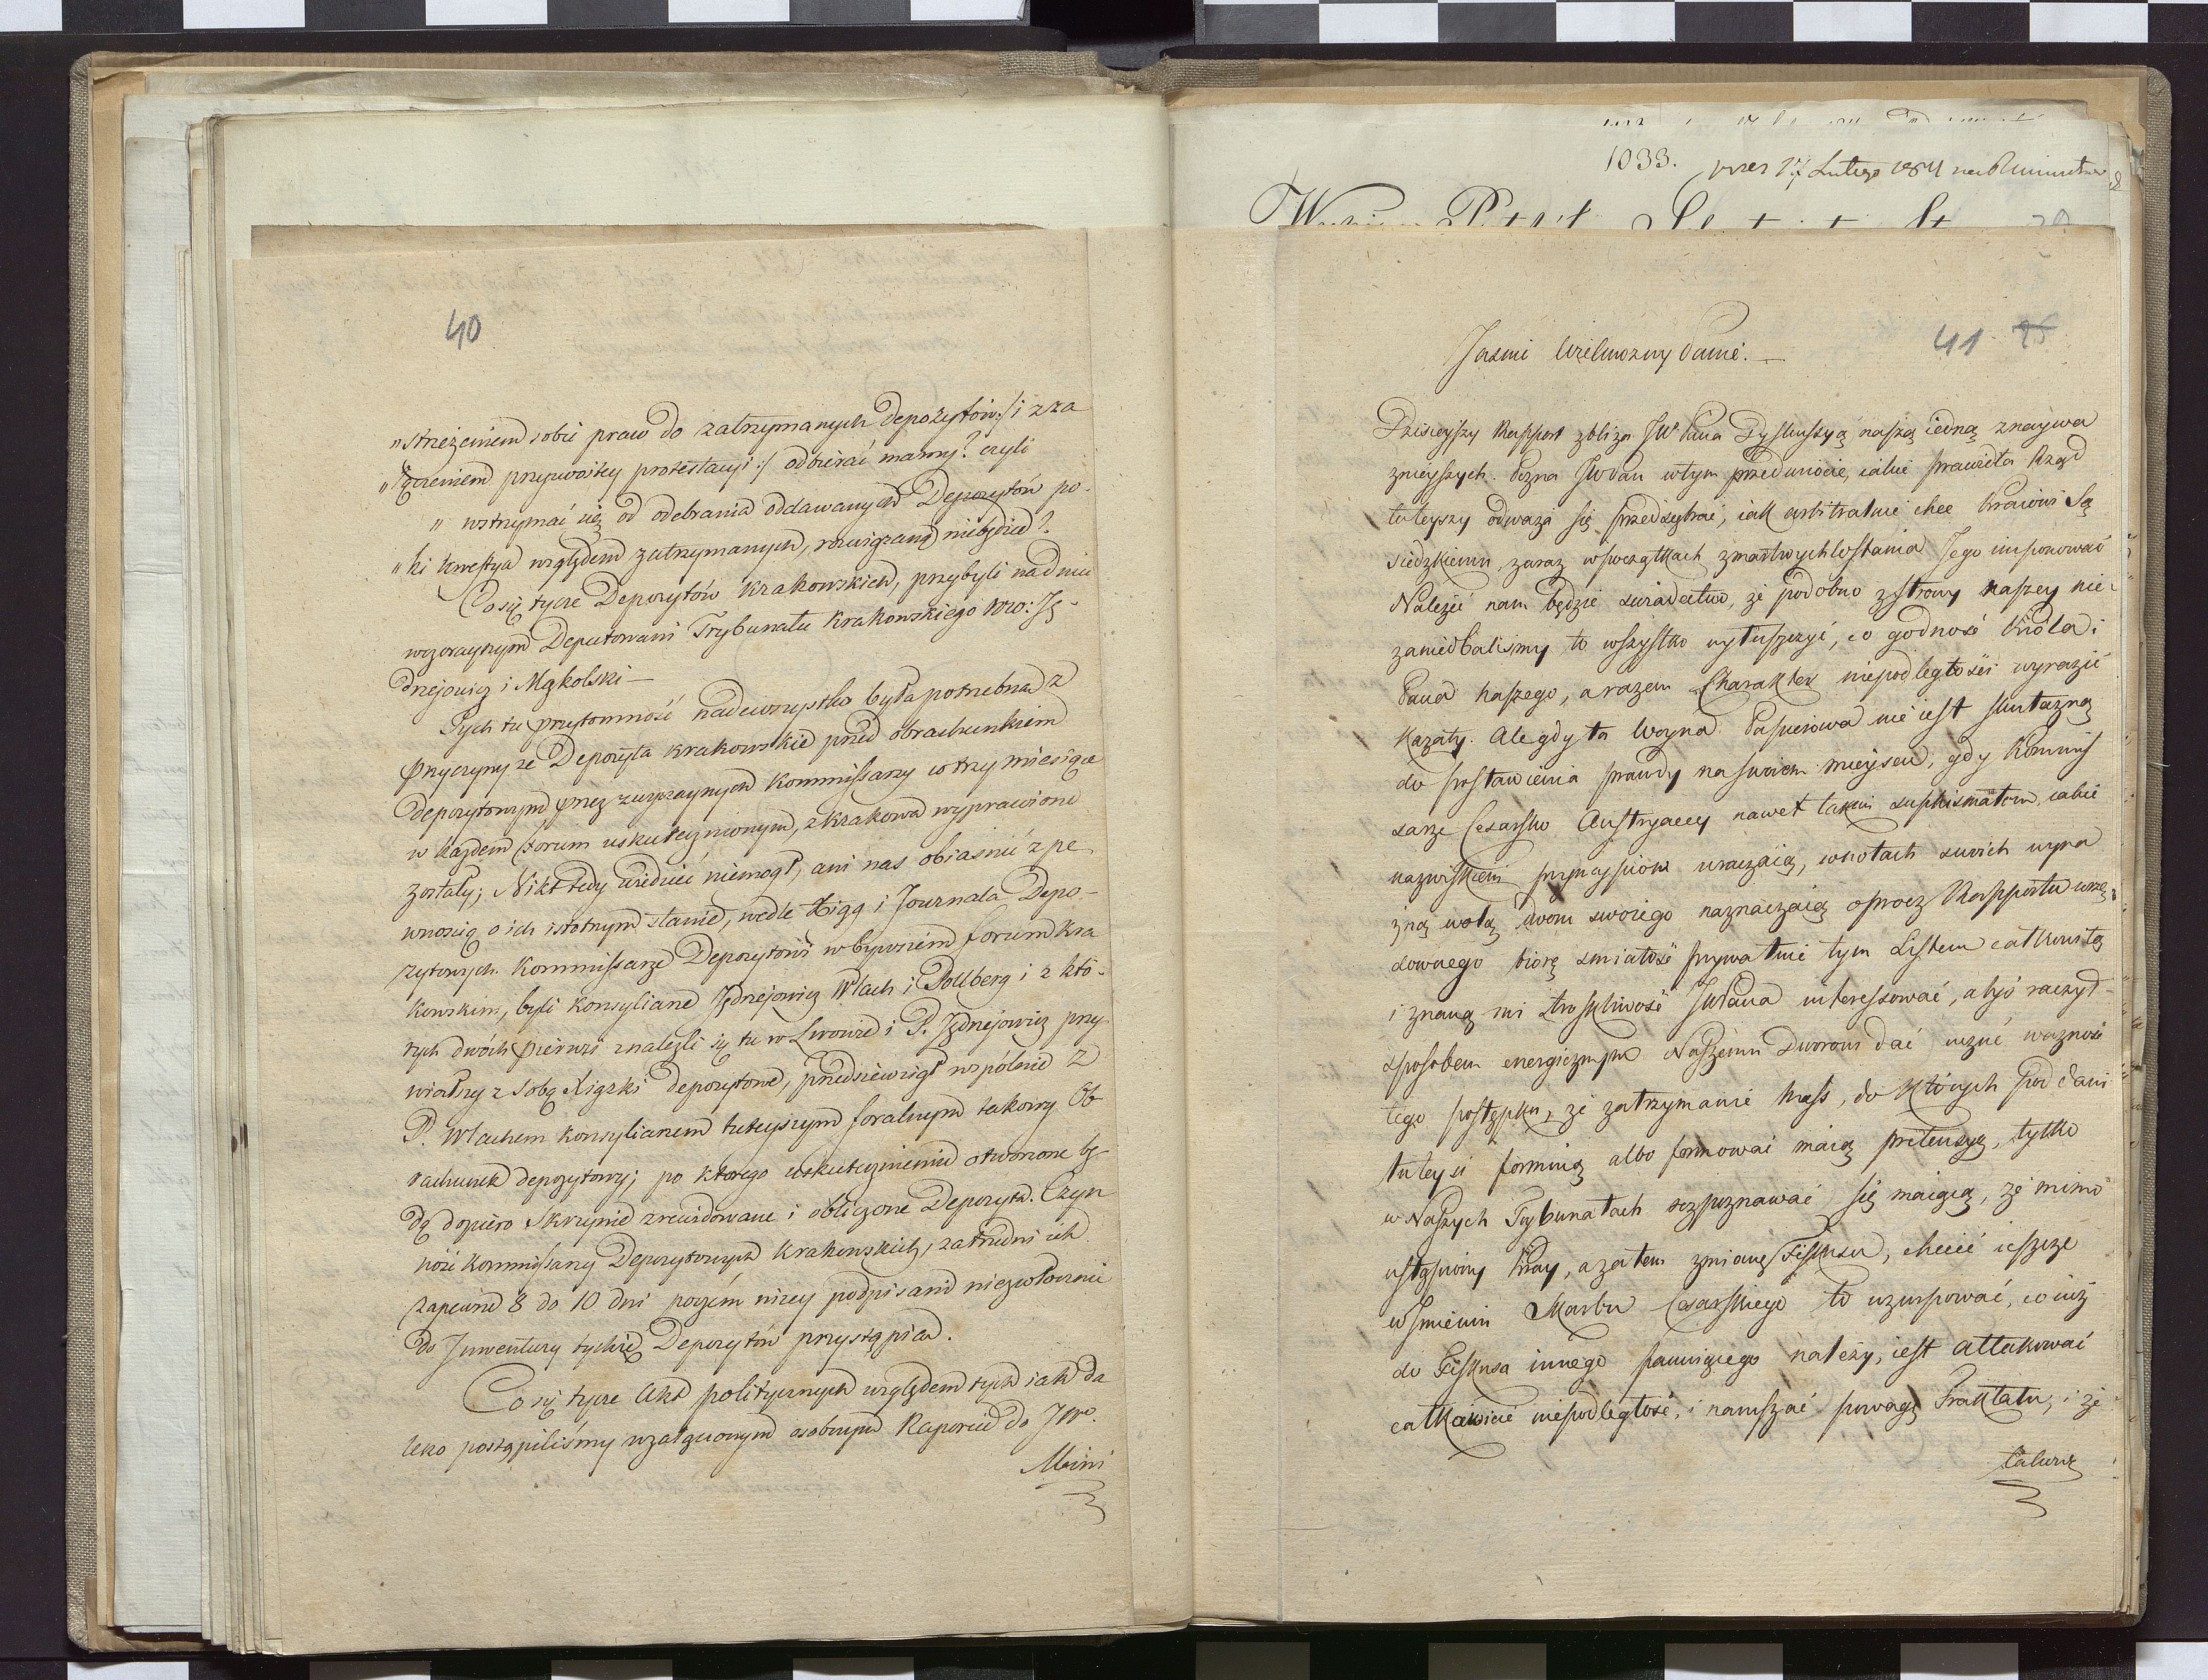 40
„strzeżeniem sobie praw do zatrzymanych Depozytów:/ i z za
„łączeniem przyzwoitey protestacyi :/ odbierać mamy? czyli
„wstrzymać się od odebrania oddawanych Depozytów po-
„ki kwestya względem zatrzymanych, rozwiązaną niebędzie?
Co się tycze Depozytów Krakowskich, przybyli na dniu
wczorayszym Deputowani Trybunału Krakowskiego Ję-
drzejowicz i Mąkolski —
Tych tu przytomność nadewszystko była potrzebna z
przyczyny że Depozyta krakowskie przed obrachunkiem
depozytowym przez zwyczaynych Kommissarzy co trzy miesiące
w każdem forum uskutecznionym, z Krakowa wyprawione
zostały; Nikt tedy wiedzieć niemogł, ani nas obiasnić z pe
wnością o ich istotnym stanie, wedle Xiąg i Journala Depo-
zytowych. Kommissarze Depozytowi w bywszém forum Kra
kowskim, byli Konsyliarze Jędrzejowicz Wlach i Pollberg i z któ-
rych dwóch pierwsi znalezli się tu w Lwowie i P. Jędrzejowicz przy
wiozłszy z sobą Xiążki depozytowe, przedsiewziął wspólnie z
P. Wlachem Konsyliarzem tuteyszym foralnym takowy Ob-
rachunek depozytowy; po ktorego uskutecznieniu otworzone bę-
dą dopiéro Skrzynie zrewidowane i obliczone Depozyta. Czyn
ność Kommissarzy Depozytowych Krakowskich, zatrudni ich
zapewne 8 do 10 dni poczém niżey podpisani niezwłocznie
do Inwentury tychże Depozytów przystąpią.
Co się tycze Akt politycznych względem tych iak da
leko postąpiliśmy wzałączonym osobnym Raporcie do JW.
Mini
1033. Luteg
41
Jasnie Wielmozny Panie. —
Dzisieyszy Rapport zbliża JW Pana Dyskussyą naszą iedną znaywa
znieyszych. Pozna JW Pan w tym przedmiocie, iakie prawidła Rząd
tuteyszy odważa się przedsiębrać, iak arbitralnie chce Kraiowi Są
siedzkiemu, zaraz w początkach zmartwychwstania Jego imponować
Należeć nam będzie swiadectwo, że podobno z strony naszey nie-
zaniedbalismy to wszystko wytuszczyć, co godność Króla i
Pana naszego, a razem Charakter niepodległości wyrazić
kazały. Ale gdy ta Woyna Papierowa nie iest skuteczną
do postawienia prawdy na swoiem mieyscu, gdy Kommis
sarze Cesarsko Austryaccy nawet takim suphismatom, iakie
nazwiskiem pryncypiów uraczaią, w notach swoich wyra
zną wolą dworu swoiego naznaczaią oprocz Rapportu urzę
downego biorę smiałość prywatnie tym Listem całkowitą
i znaną mi troskliwość JWPana interessować, abyś raczył
sposobem energicznym Naszemu Dworowi dać uczuć ważność
tego postępku, że zatrzymanie Mass, do których pod dani
tuteysi formuią albo formować maią pretensyą, tylko
w Naszych Trybunałach rozpoznawać się maiącą, że mimo
ustąpiony Kray, a zatem zmianę Fiskusa, chcieć ieszcze
w Imieniu Skarbu Cesarskiego to uzurpować, co iuż
do Fiskusa innego panuiącego należy, iest attakować
całkowicie niepodległość, i naruszać powagę Traktatu, i że
takowe